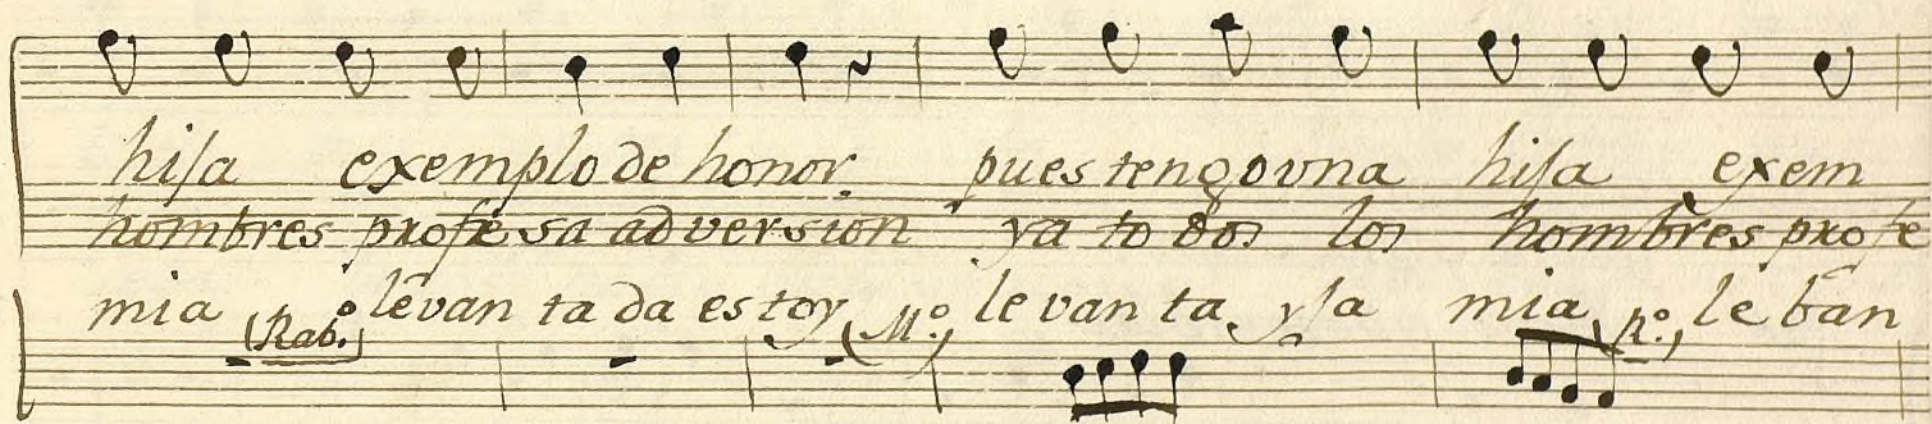 hija exemplo de honor. pues tengo vna hija exem
hombres profe sa adversion ya to dos los hombres profe
mia (Rab.o) levan ta da es toy (M.o) le van ta yja mia (R.o) le ban